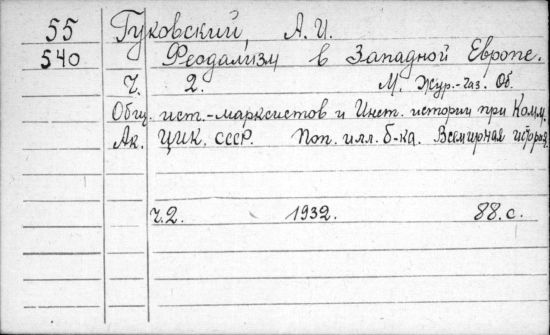 55 Гуковский, А. И.
540 Феодализм в Западной Европе.
Ч. 2. М. Жур.-газ. Об.
Общ. ист.-марксистов и Инст. истории при Комм.
Ак. ЦИК. СССР. Поп. илл. б-ка. Всемирная история.
ч.2. 1932. 88. с.